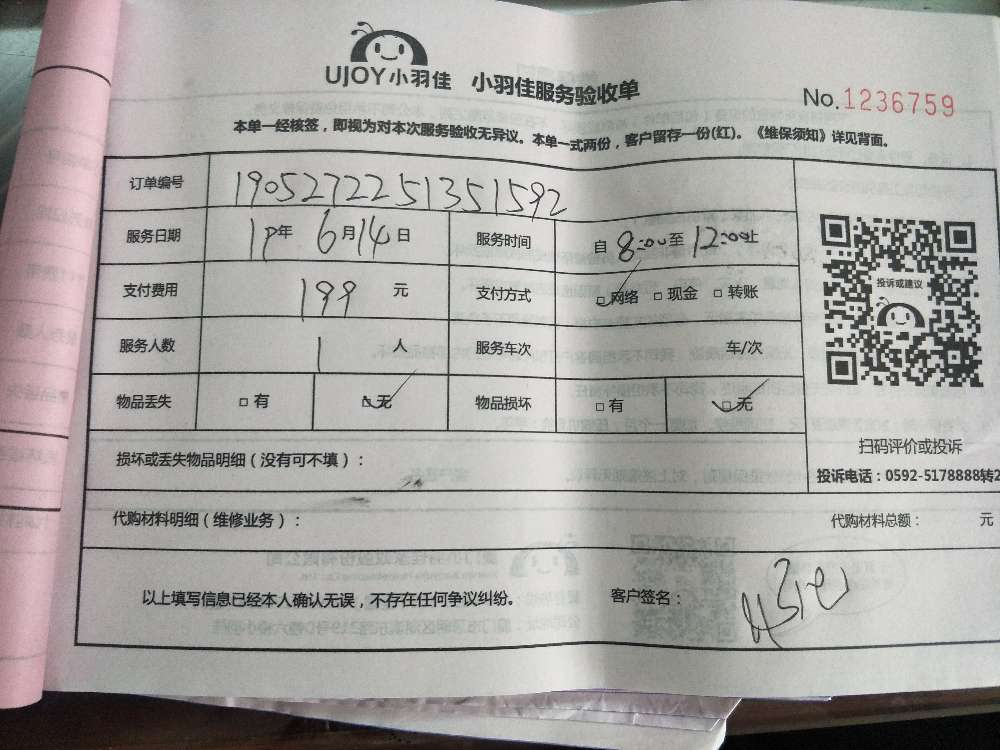 UJOY小羽佳 小羽佳服务验收单
No.1236759
本单一经核签，即视为对本次服务验收无异议。本单一式两份，客户留存一份(红)。《维保须知》详见背面。
订单编号 1905272251351592
服务日期 19年 6月14日 服务时间 自 8:00至 12:00止
支付费用 199 元 支付方式 □网络 □现金 □转账
投诉或建议
服务人数 1 人 服务车次 车/次
物品丢失 □有 □无 物品损坏 □有 □无
扫码评价或投诉
损坏或丢失物品明细（没有可不填）：
投诉电话：0592-5178888转2
代购材料明细（维修业务）： 代购材料总额： 元
以上填写信息已经本人确认无误，不存在任何争议纠纷。 客户签名：